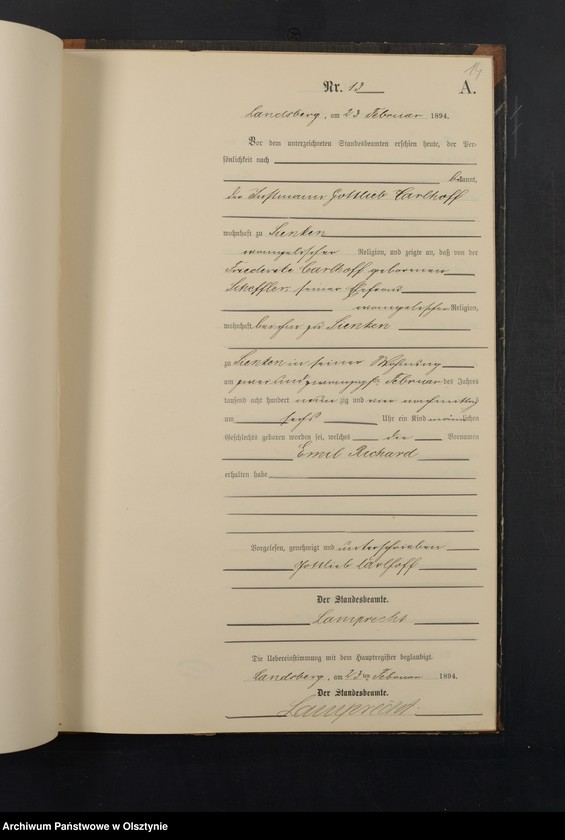 14
Nr. 12
A.
Landsberg, am 23 Februar 1894.
Vor dem unterzeichneten Standesbeamten erschien heute, der Per-
sönlichkeit nach
bekannt,
der Instmann Gottlieb Carlhoff
wohnhaft zu Sienken
evangelischer Religion, und zeigte an, daß von der
Friederike Carlhoff geborenen
Scheffler, seiner Ehefrau
evangelischer Religion,
wohnhaft bei ihm zu Sienken
zu Sienken in seiner Wohnung
am zwei und zwanzigsten Februar des Jahres
tausend acht hundert neunzig und vier nachmittags
um sechs Uhr ein Kind männlichen
Geschlechts geboren worden sei, welches die Vornamen
Emil Richard
erhalten habe
Vorgelesen, genehmigt und unterschrieben
Gottlieb Carlhoff
Der Standesbeamte.
Lamprecht
Die Uebereinstimmung mit dem Hauptregister beglaubigt.
Landsberg, am 23ten Februar 1894.
Der Standesbeamte.
Lamprecht.
Archiwum Państwowe w Olsztynie